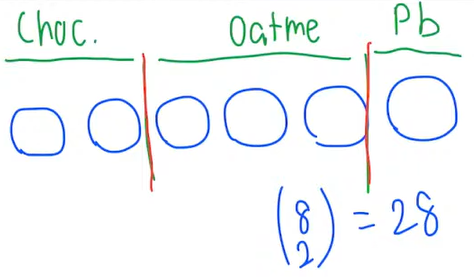 Choc. Oatme Pb
(8 2) = 28